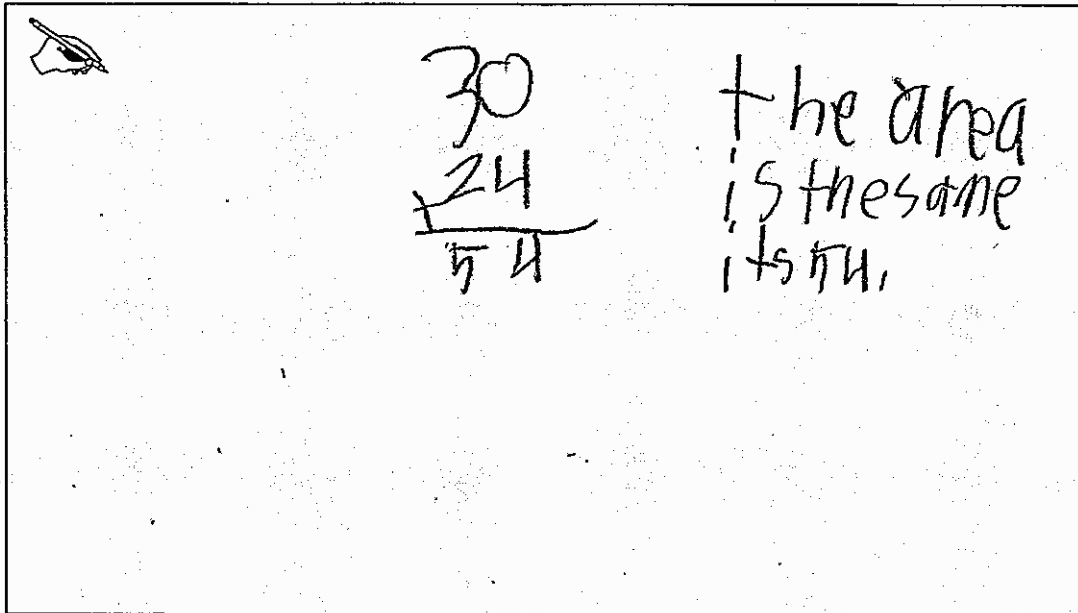 30
24
+
54
the area
is the same
its 54.